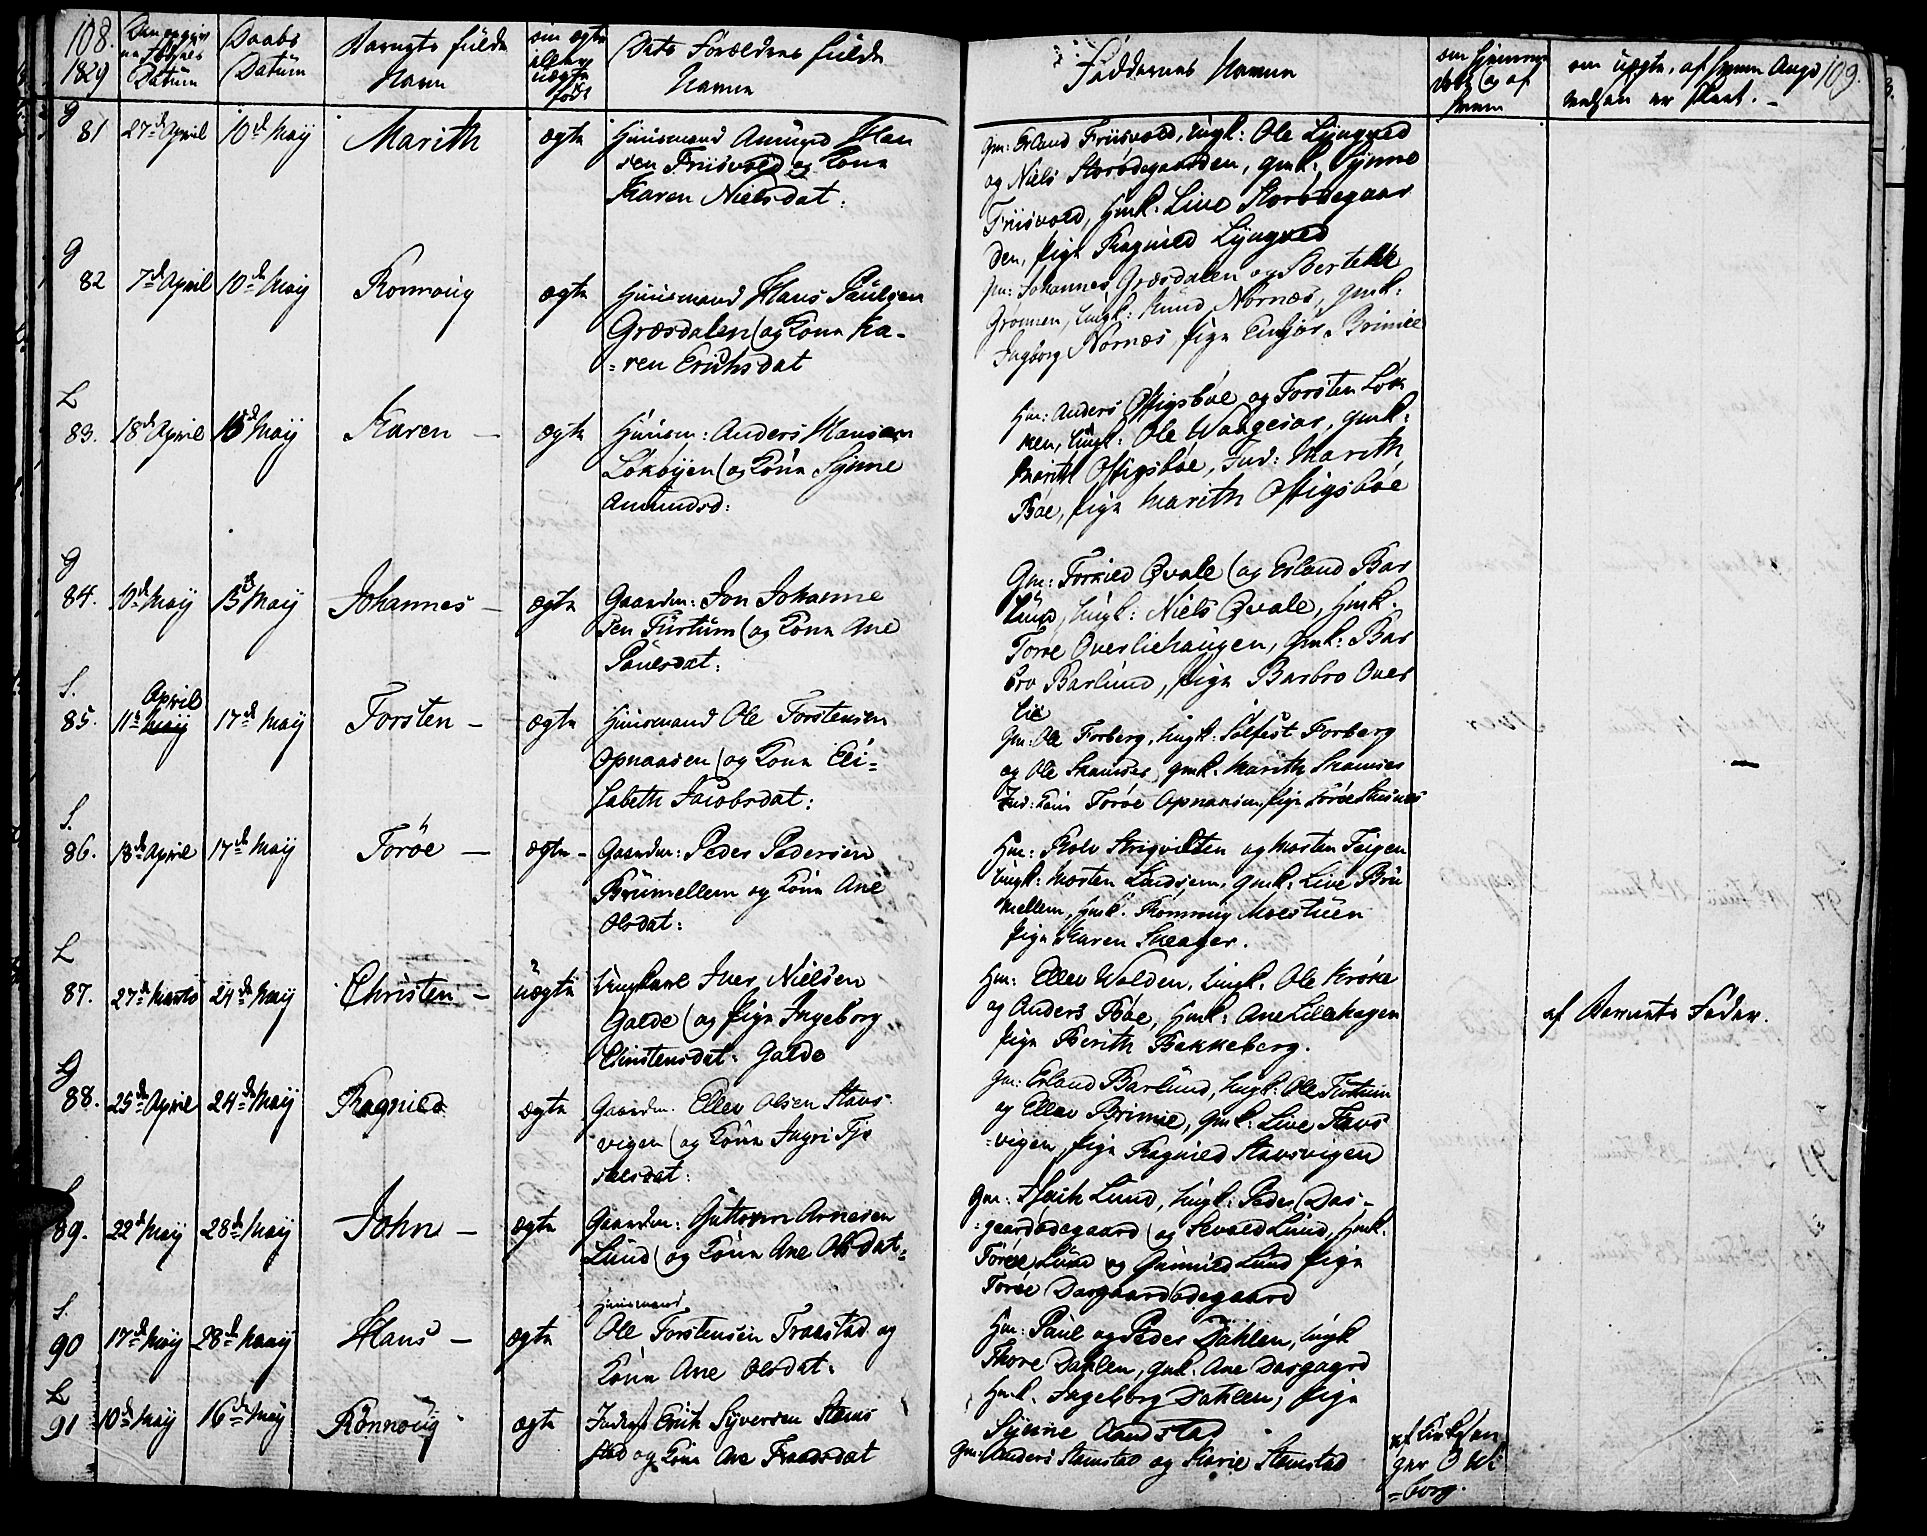 108. 1829
Den opgivne Fødsels Datum
Daabs Datum
Barnets fulde Navn
om ægte eller uægte født
Dets Forældres fulde Navne
Faddernes Navne
om hjemme døbt og af hvem
om uægte, af hvem Angivelsen er skeet. -
109.
g
81 27de April 10de Maÿ Marith ægte Huusmand Amund Han
sen Friisvold og Kone
Karen Nielsdat:
Gm: Erland Friisvold, Ungk: Ole Lÿngved
og Niels Storødegaarden, gmk: Sÿnne
Friisvold, Hmk: Live Storødegaar
den, Pige Ragnild Lÿngved
g
82 7de April 10de Maÿ Ronnoug ægte Huusmand Hans Paulsen
Græsdalen (og Kone Ka-
=ren Erichsdat
Hm: Johannes Græsdalen og
Grønnen, Ungk: Knud Nornæs, gmk:
Ingborg Nornæs Pige Brimie
L
83. 18de April 10de Maÿ Karen - ægte Huusm: Anders Hansen
Løkøÿen (og Kone Sÿnne
Amundsd:
Hm: Anders Offigsbøe og Torsten Løk
ken, Ungk: Ole Waagesar, gmk:
Marith Offigsbøe, Ind: Marith
Bøe, Pige Marith Offigsbøe
g
84. 10de Maÿ 13de Maÿ Johannes - ægte Gaardm: Jon Johanne
sen Turtum (og Kone Ane
Paulsdat:
Gm: Torkild Qvale (og Erland Bar
lund, Ungk: Niels Qvale, Hmk:
Toroe Overliehaugen, Gmk: Bar
bro Barlund, Pige Barbro Over
lie
S.
85. 11te April 17de Maÿ Torsten - ægte Huusmand Ole Torstensen
Opnaasen (og Kone Eli=
sabeth Jacobsdat:
Gm: Ole Forberg, Ungk: Solfest Forberg
og Ole Skamsar, gmk: Marith Skamsar
Ind: Kone Toroe Opnaasen, Pige
S.
86. 18de April 17de Maÿ Toroe - ægte - Gaardm: Peder Pedersen
Brumellem og Kone Ane
Olsdat:
Hm: Rolv og Morten Teigen
Ungk: Morten Lindsjem, Gmk: Live Bru
mellem, Hmk: Ronnoug
Pige Karen Sneager.
L
87. 27de Marts 24de Maÿ Christen - uægte Ungkarl Iver Nielsen
Galde (og Pige Ingeborg
Christensdat: Galde
Hm: Ellev Wolden, Ungk: Ole Kroke
og Anders Bøe, Hmk: Ane Lillehagen
Pige Berith Bakkeberg.
af Barnets Fader.
g
88. 25de April 24de Maÿ Ragnild ægte Gaardm: Ellev Olsen Stavs
vigen (og Kone Ingri Tjø
stelsdat:
Gm: Erland Barlund, Ungk: Ole Turtum
og Ellev Brimie, Gmk: Live Stavs
=vigen, Pige Ragnild Stavsvigen
L
89. 22de Maÿ 28de Maÿ John - ægte Gaardm: Guttorm Arnesen
Lund (og Kone Ane Olsdat=
Gm: Lund, Ungk: Peder Das=
=gaardødegaard (og Sevald Lund, Hmk:
Toroe Lund og Gunnild Lund Pige
Toroe Dasgaardødegaard
S.
90 17de Maÿ 28de Maaÿ Hans - ægte Huusmand
Ole Torstensen Fraastad og
Kone Ane Olsdat:
Hm: Paul og Peder Dahlen, Ungk
Thore Dahlen, Gmk: Ane Dasgaard
Hmk: Ingeborg Dahlen, Pige
Sÿnne Aandstad
L
91 10de Maÿ 16de Maÿ Rønnoug ægte Inderst Erik Sÿversen Stams
stad og Kone Ane Fraadsdat
Gm: Anders Stamstad og Karie Stamstad
af Kirkesan
ger O Wi
=borg.